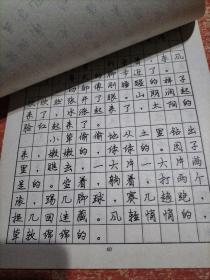 来了，
欣欣然张开了眼。山朗润
起来了，水涨起来了，太阳的
脸红起来了。
小草偷偷地从土里钻出
来，嫩嫩的，绿绿的。园子
里，瞧去，一大片一大片满
是的。坐着，躺着，打两个
滚，踢几脚球，赛几趟跑，
捉几回迷藏。风轻悄悄的，
草软绵绵的。